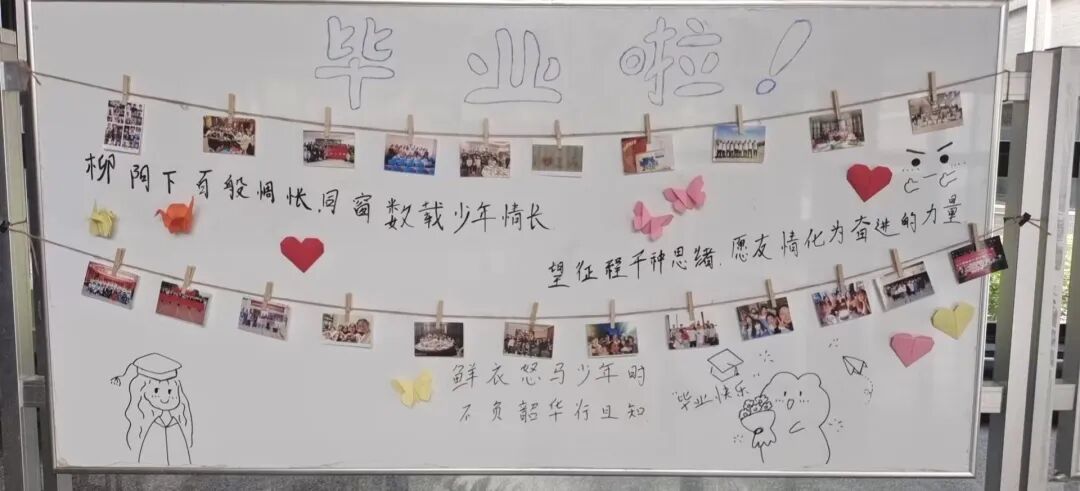 毕业啦!
柳阴下百般惆怅,同窗数载少年情长
望征程千种思绪,愿友情化为奋进的力量
鲜衣怒马少年时
不负韶华行且知
毕业快乐